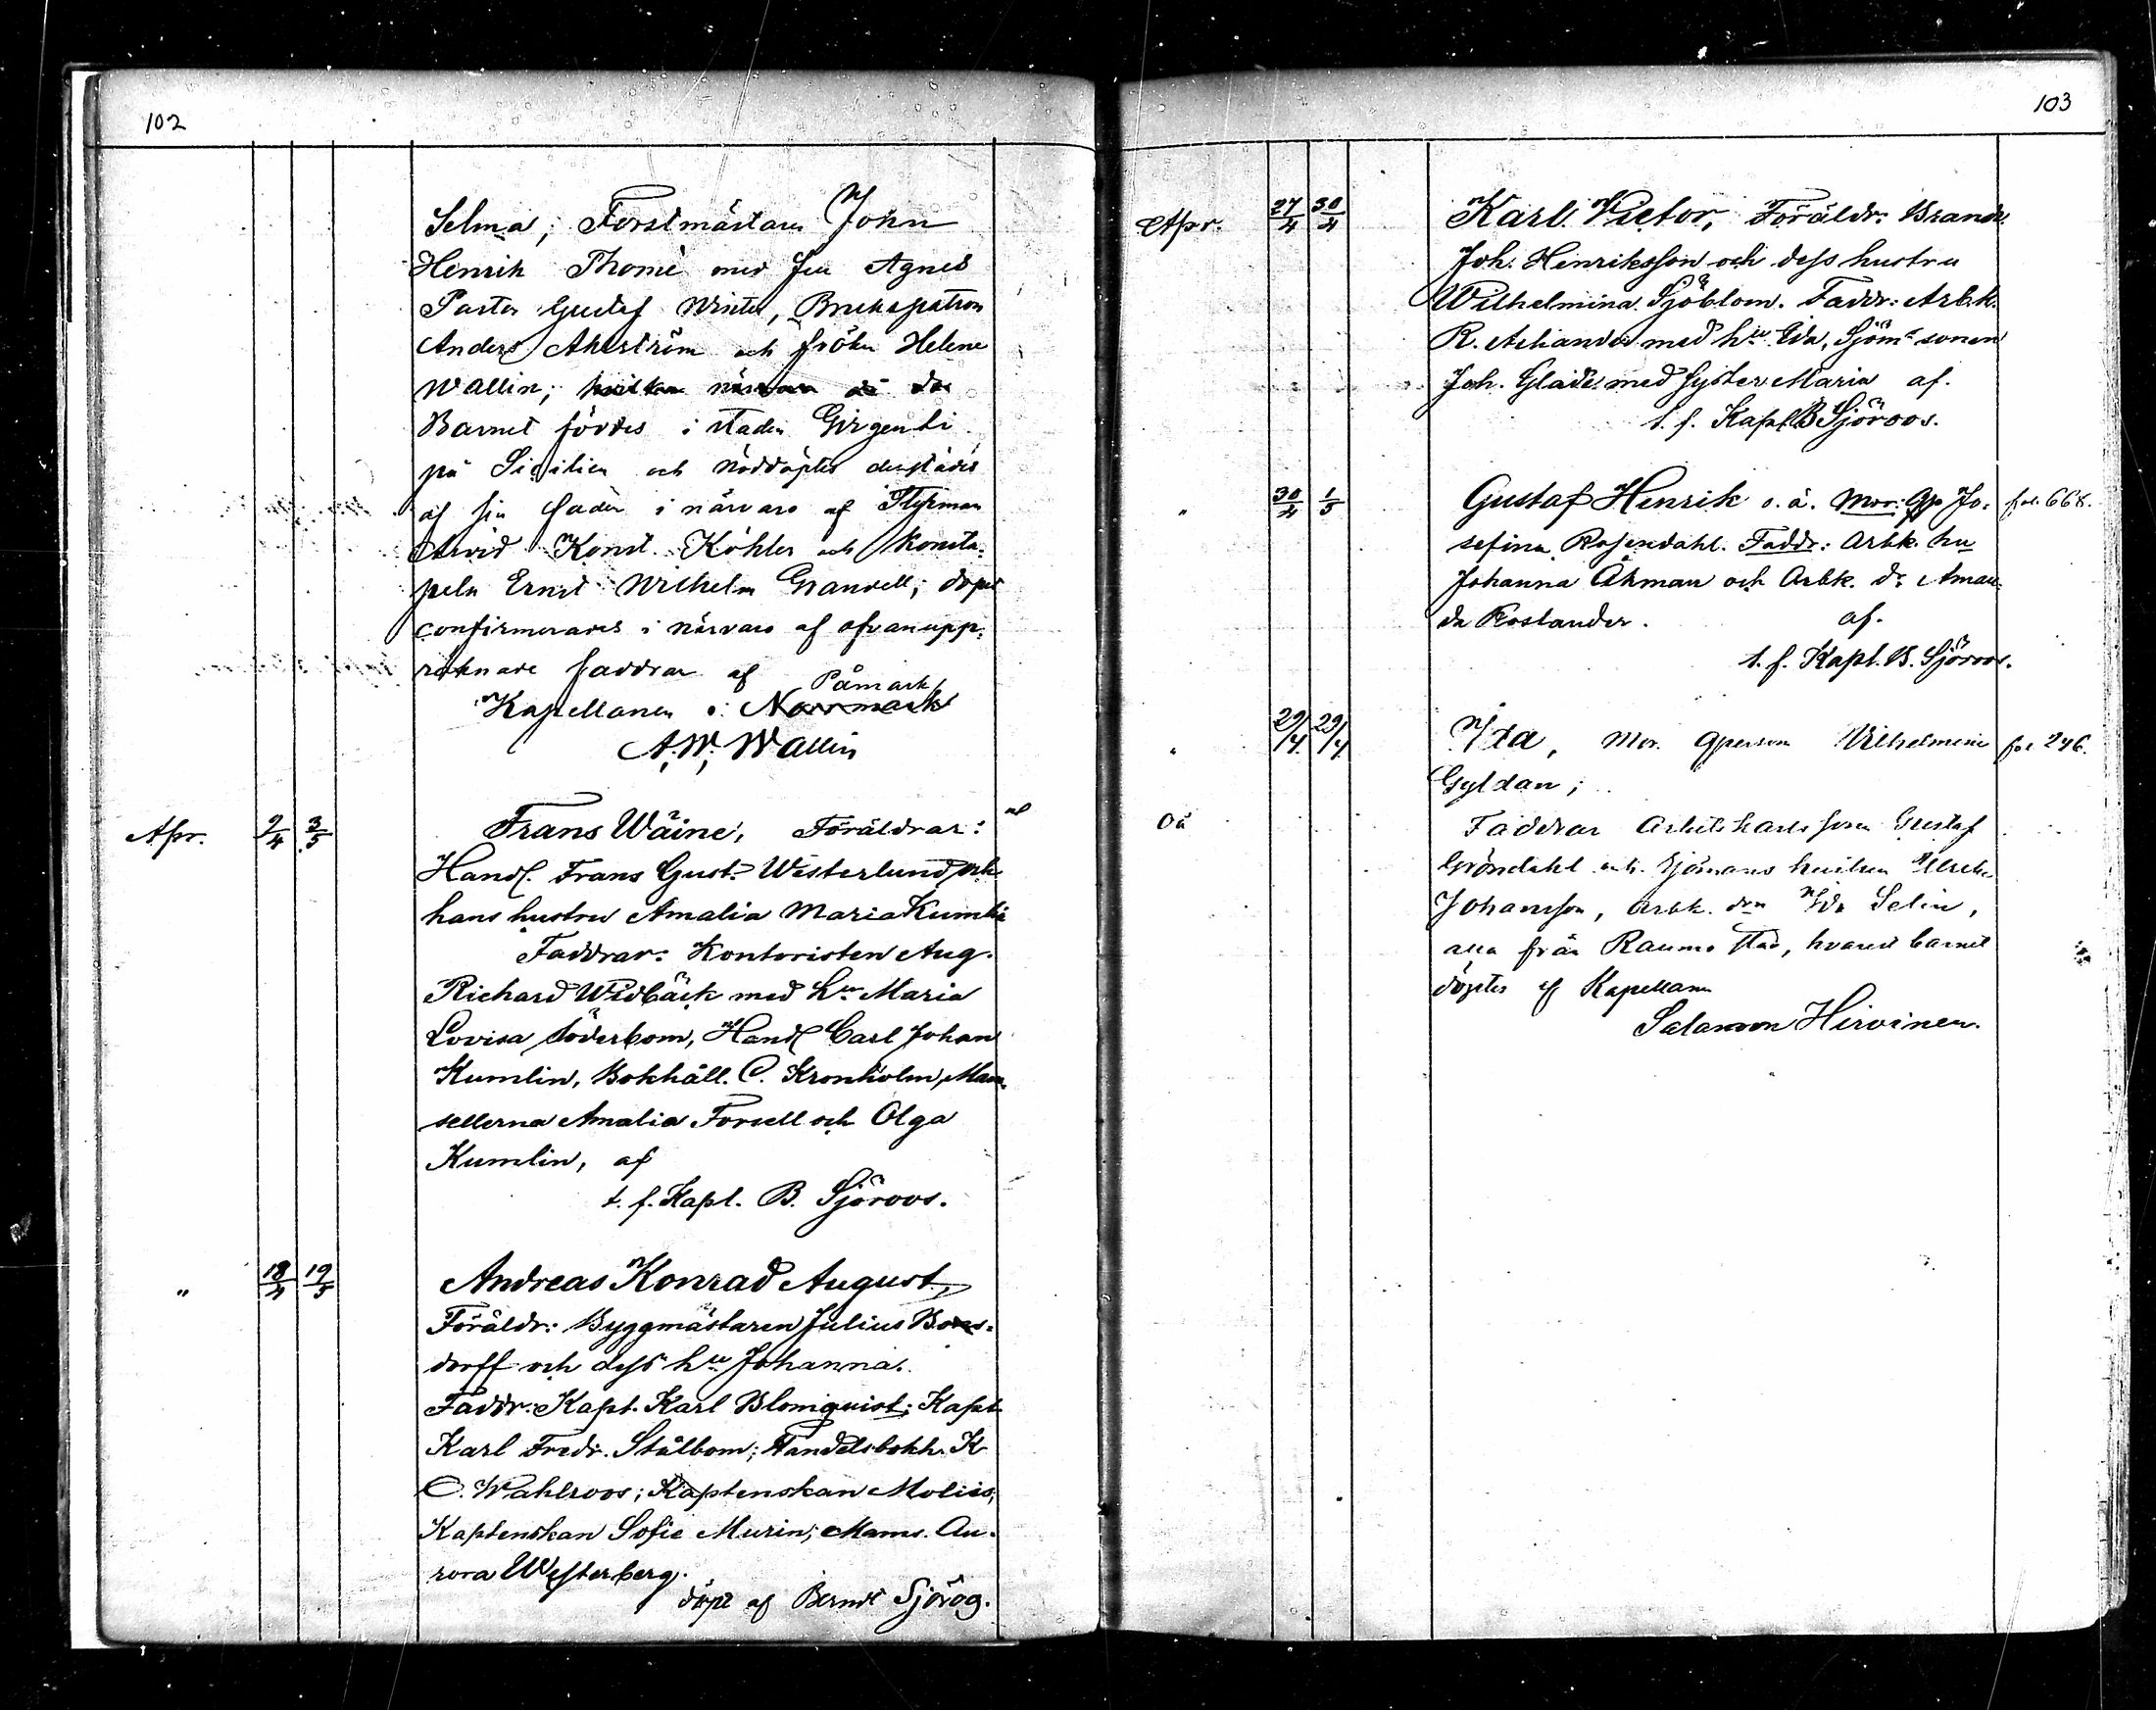 102
Selma; Forstmästaren John
Henrik Thomé med fru Agnes
Pastor Gustaf Winter, Brukspatron
Anders Ahlström och fröken Helene
Wallin;
Barnet föddes i staden Girgenti
på Sicilien och nöddöptes derstädes
af sin fader i närvaro af Styrman
Arvid Konst. Köhler och Konsta-
peln Ernst Wilhelm Grandell; dopet
confirmerades i närvaro af ofvanupp-
räknade faddrar af
Påmark
Kapellanen i Norrmark
A. W. Wallin
Apr. 9/4 3/5 Frans Wäinö, Föräldrar:
Handl. Frans Gust. Westerlund och
hans hustru Amalia Maria Kumlin
Faddrar: Kontoristen Aug.
Richard Widbäck med hu Maria
Lovisa Söderbom, Handl Carl Johan
Kumlin, Bokhåll. C. Kronholm, Mam-
sellerna Amalia Forsell och Olga
Kumlin, af
t. f. Kapl. B. Sjöroos.
" 18/4 19/5 Andreas Konrad August,
Föräldr: Byggmästaren Julius Bons-
dorff och dess hu Johanna.
Faddr: Kapt. Karl Blomqvist; Kapt.
Karl Fredr. Stålbom; Handelsbokh. K
O. Wahlroos; Kaptenskan Moliis;
Kaptenskan Sofie Murin; Mams. Au-
rora Westerberg.
döpt af Berndt Sjöros.
103
Apr. 27/4 30/4 Karl Victor, Föräldr: Brandv.
Joh. Henriksson och dess hustru
Wilhelmina Sjöblom. Faddr: Arbk.
R. Achander med hu Ida, Sjöms sonen
Joh. Glade med syster Maria af.
t. f. Kapl B Sjöroos.
" 30/4 1/5 Gustaf Henrik o. ä. Mor: Qp Jo- fol. 668.
sefina Rosendahl. Faddr: Arbk. hu
Johanna Åkman och Arbk. dr Aman-
da Roslander. af.
t. f. Kapl. B. Sjöroos.
" 29/4 29/4 Ida, Mor. qperson Vilhelmina fol 246.
Gyldan;
oä Faddrar Arbetskarlssonen Gustaf
Gröndahl och Sjömans hustrun Ulrika
Johansson, Arbk. dr Ida Selin,
alla från Raumo stad, hvarest barnet
döptes af Kapellanen
Salamon Hirvinen.